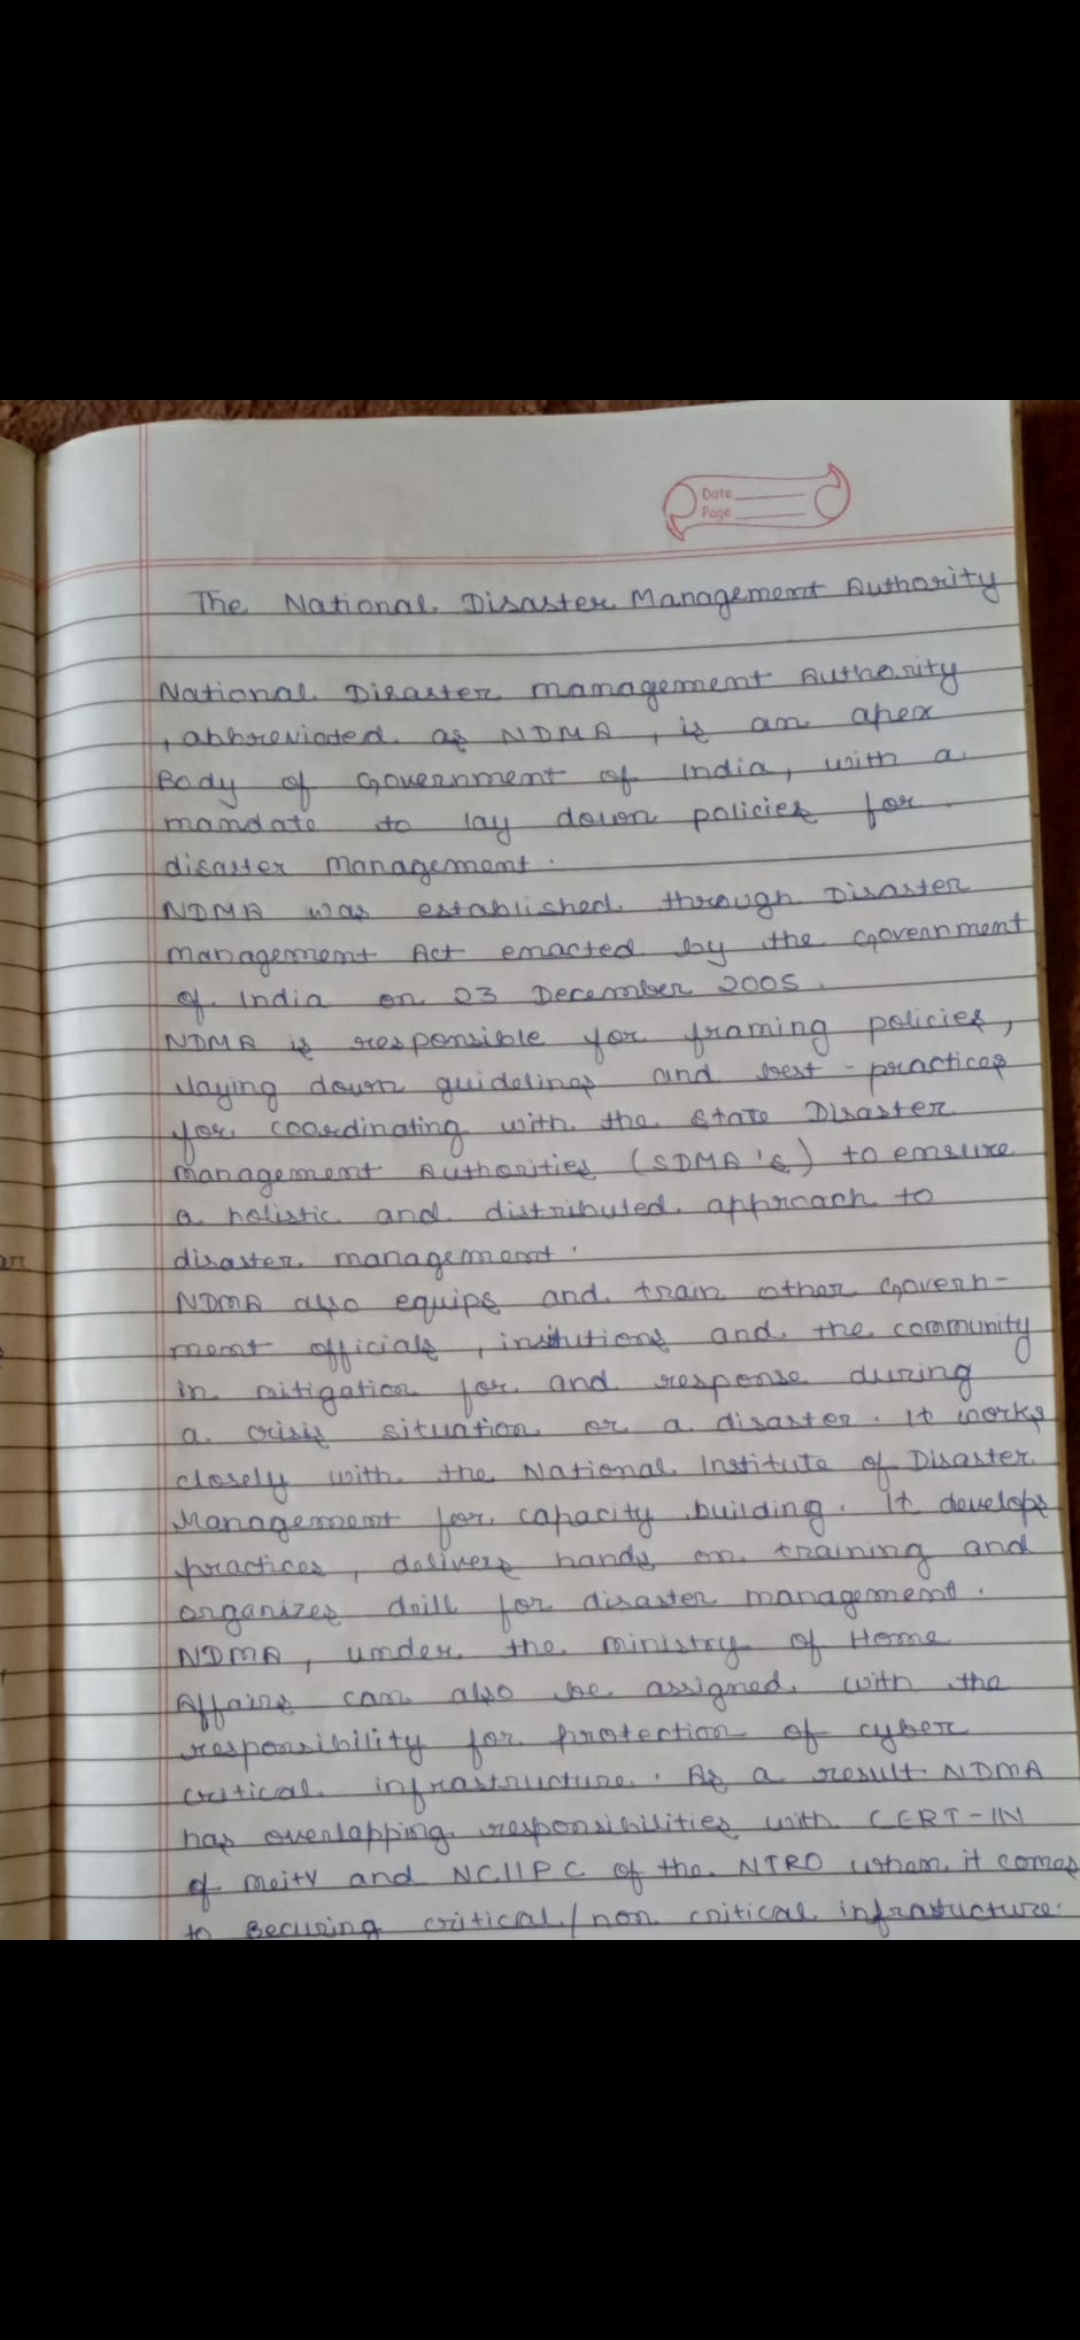 Date
Page
The National Disaster Management Authority
National Disaster management Authority
, abbreviated as NDMA, is an apex
Body of Government of India, with a
mandate to lay down policies for
disaster management.
NDMA was established through Disaster
management Act enacted by the Government
of India on 23 December 2005.
NDMA is responsible for framing policies,
laying down guidelines and best-practices
for coordinating with the State Disaster
management Authorities (SDMA's) to ensure
a holistic and distributed approach to
disaster management.
NDMA also equips and train other Govern-
ment officials, insitutions and the community
in mitigation for and response during
a crisis situation or a disaster. It works
closely with the National Institute of Disaster
Management for capacity building. It develops
practices, delivers hands on training and
organizes drill for disaster management.
NDMA, under the ministry of Home
Affairs can also be assigned with the
responsibility for protection of cyber
critical infrastructure. As a result NDMA
has overlapping responsibilities with CERT-IN
of meity and NCIIPC of the NTRO when it comes
to securing critical/non critical infrastucture.